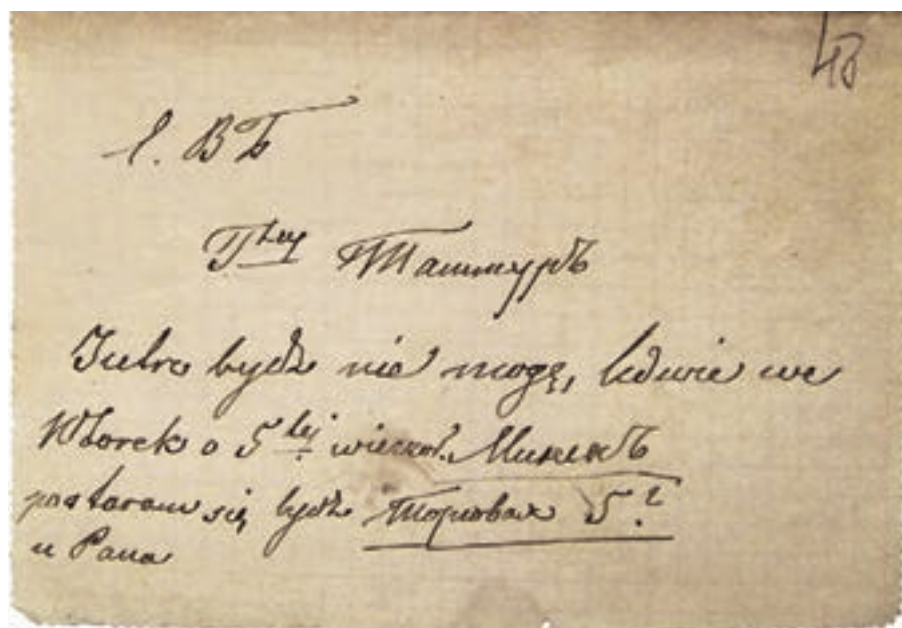 Е. В Б
Г ну Ташмуръ
Jutro bydź nie mogę, ledwie we
Wtorek o 5 tej wieczor.
postaram się bydź Торговая 5.
u Pana